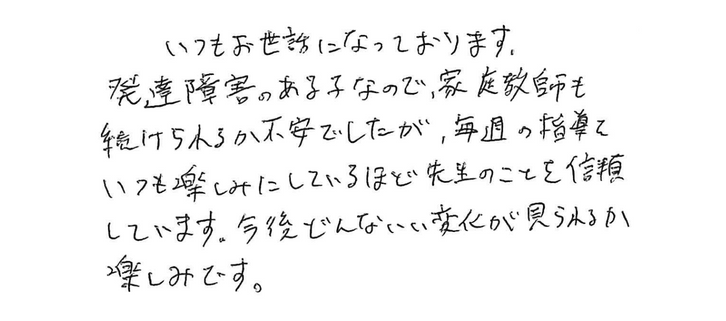 いつもお世話になっております。
発達障害のある子なので、家庭教師も
続けられるか不安でしたが、毎週の指導を
いつも楽しみにしているほど先生のことを信頼
しています。今後どんないい変化が見られるか
楽しみです。